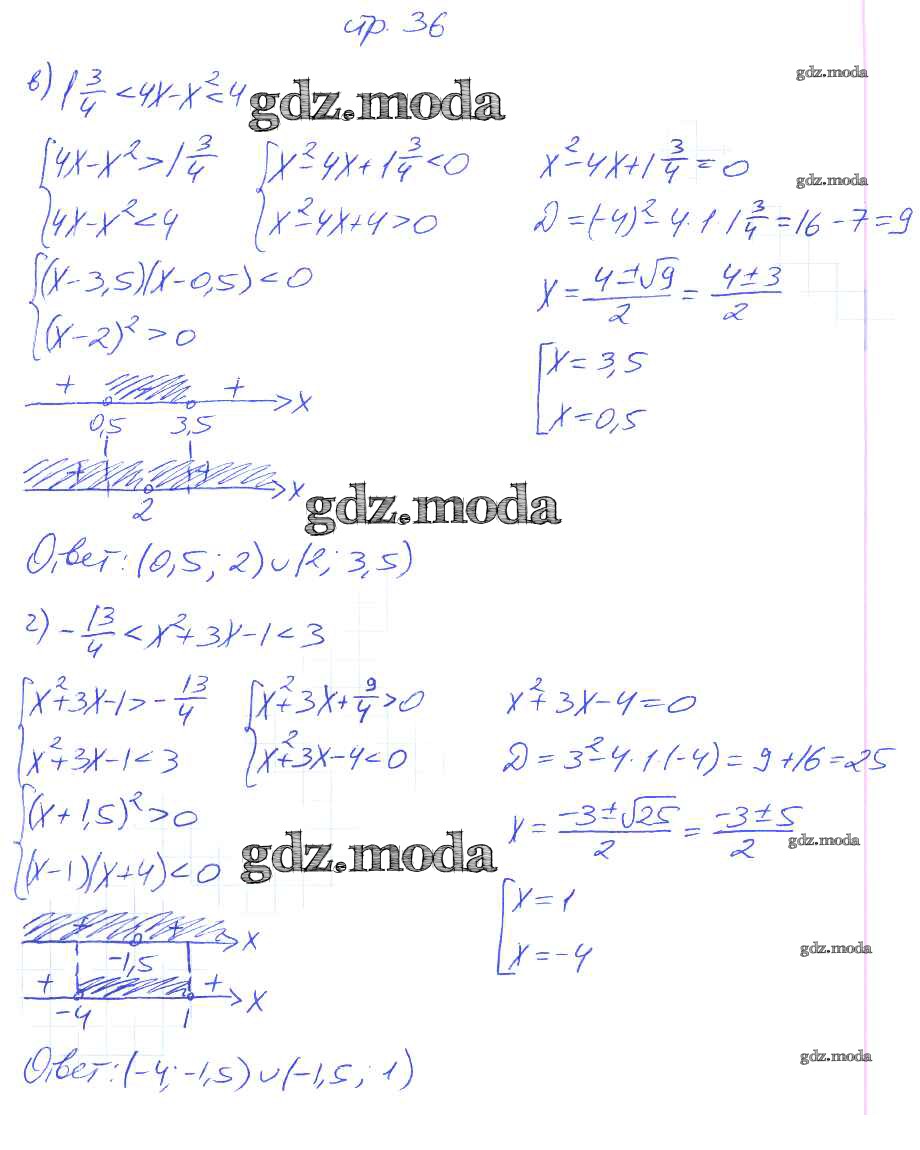 стр. 36
в) 1 3/4 < 4x - x² < 4
gdz.moda
gdz.moda
{ 4x - x² > 1 3/4
{ 4x - x² < 4
{ x² - 4x + 1 3/4 < 0
{ x² - 4x + 4 > 0
x² - 4x + 1 3/4 = 0
gdz.moda
D = (-4)² - 4·1·1 3/4 = 16 - 7 = 9
{ (x - 3,5)(x - 0,5) < 0
{ (x - 2)² > 0
x = (4 ± √9)/2 = (4 ± 3)/2
[ x = 3,5
[ x = 0,5
+ + x
0,5 3,5
+ + x
2
gdz.moda
Ответ: (0,5; 2) ∪ (2; 3,5)
г) - 13/4 < x² + 3x - 1 < 3
{ x² + 3x - 1 > - 13/4
{ x² + 3x - 1 < 3
{ x² + 3x + 9/4 > 0
{ x² + 3x - 4 < 0
x² + 3x - 4 = 0
D = 3² - 4·1·(-4) = 9 + 16 = 25
{ (x + 1,5)² > 0
{ (x - 1)(x + 4) < 0
x = (-3 ± √25)/2 = (-3 ± 5)/2
gdz.moda
gdz.moda
[ x = 1
[ x = -4
gdz.moda
+ + x
-1,5
+ + x
-4 1
Ответ: (-4; -1,5) ∪ (-1,5; 1)
gdz.moda